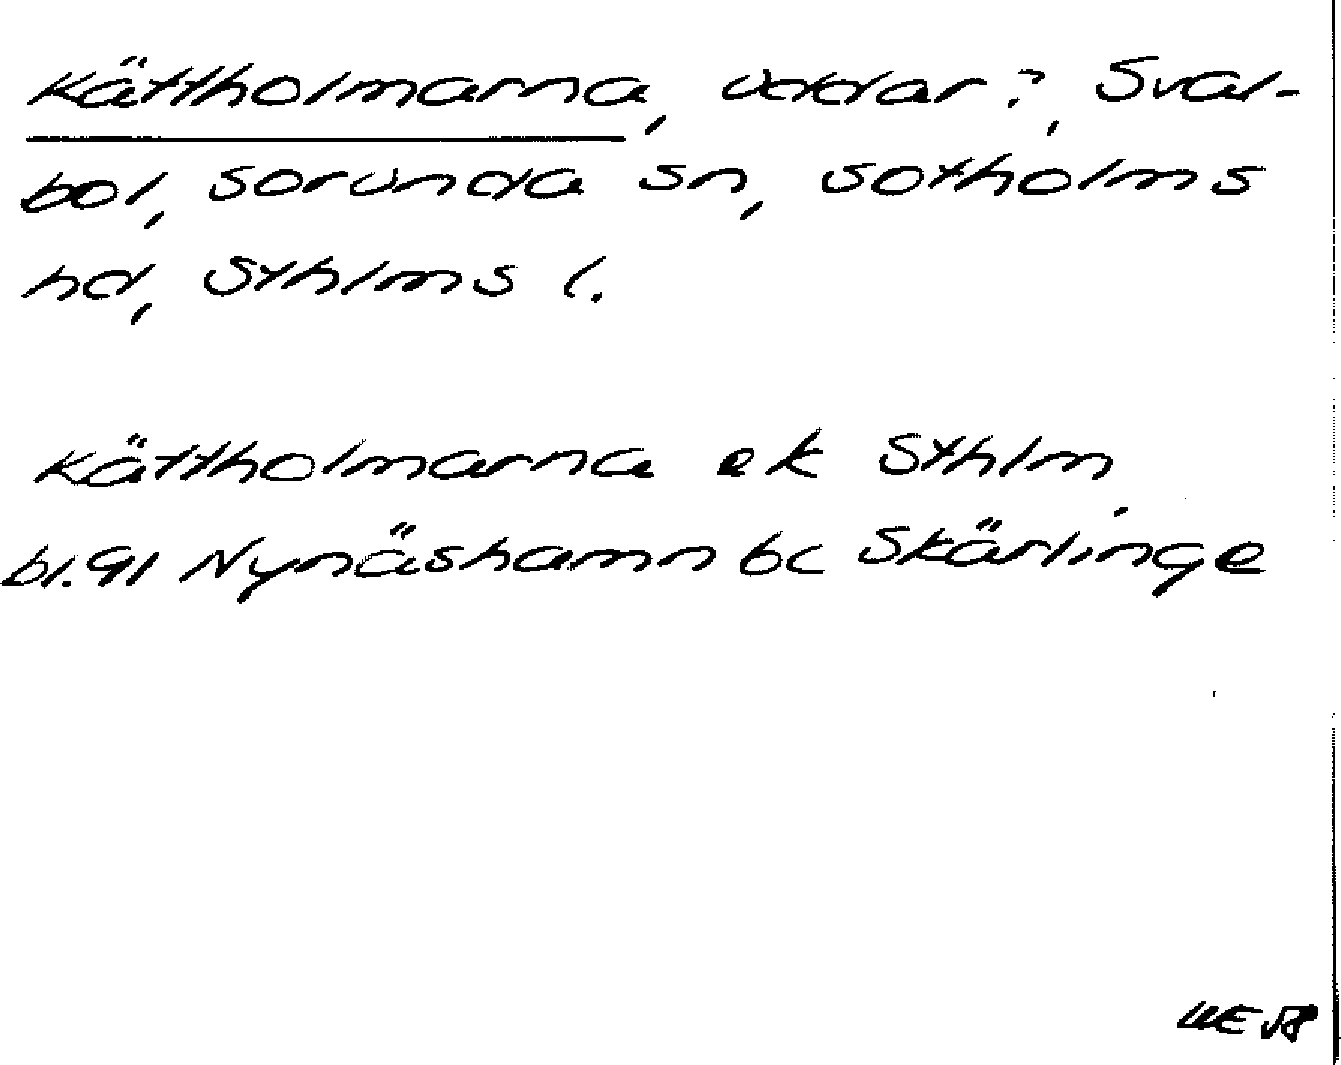 Kättholmarna, uddar?, Sval-
bol, Sorunda sn, Sotholms
hd, Sthlms l.
Kättholmarna ek Sthlm,
bl. 91 Nynäshamn bc Skärlinge